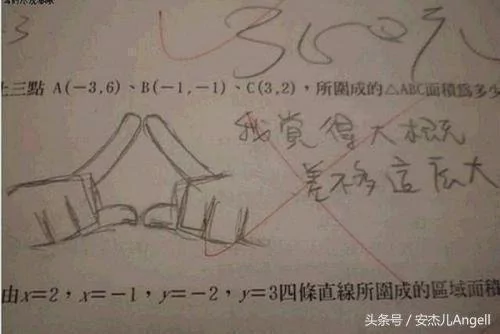 -3
上三點 A(-3,6)、B(-1,-1)、C(3,2)，所圍成的△ABC面積為多少
我覺得大概
差不多這麼大
由x=2，x=-1，y=-2，y=3四條直線所圍成的區域面積
头条号／安杰儿Angell